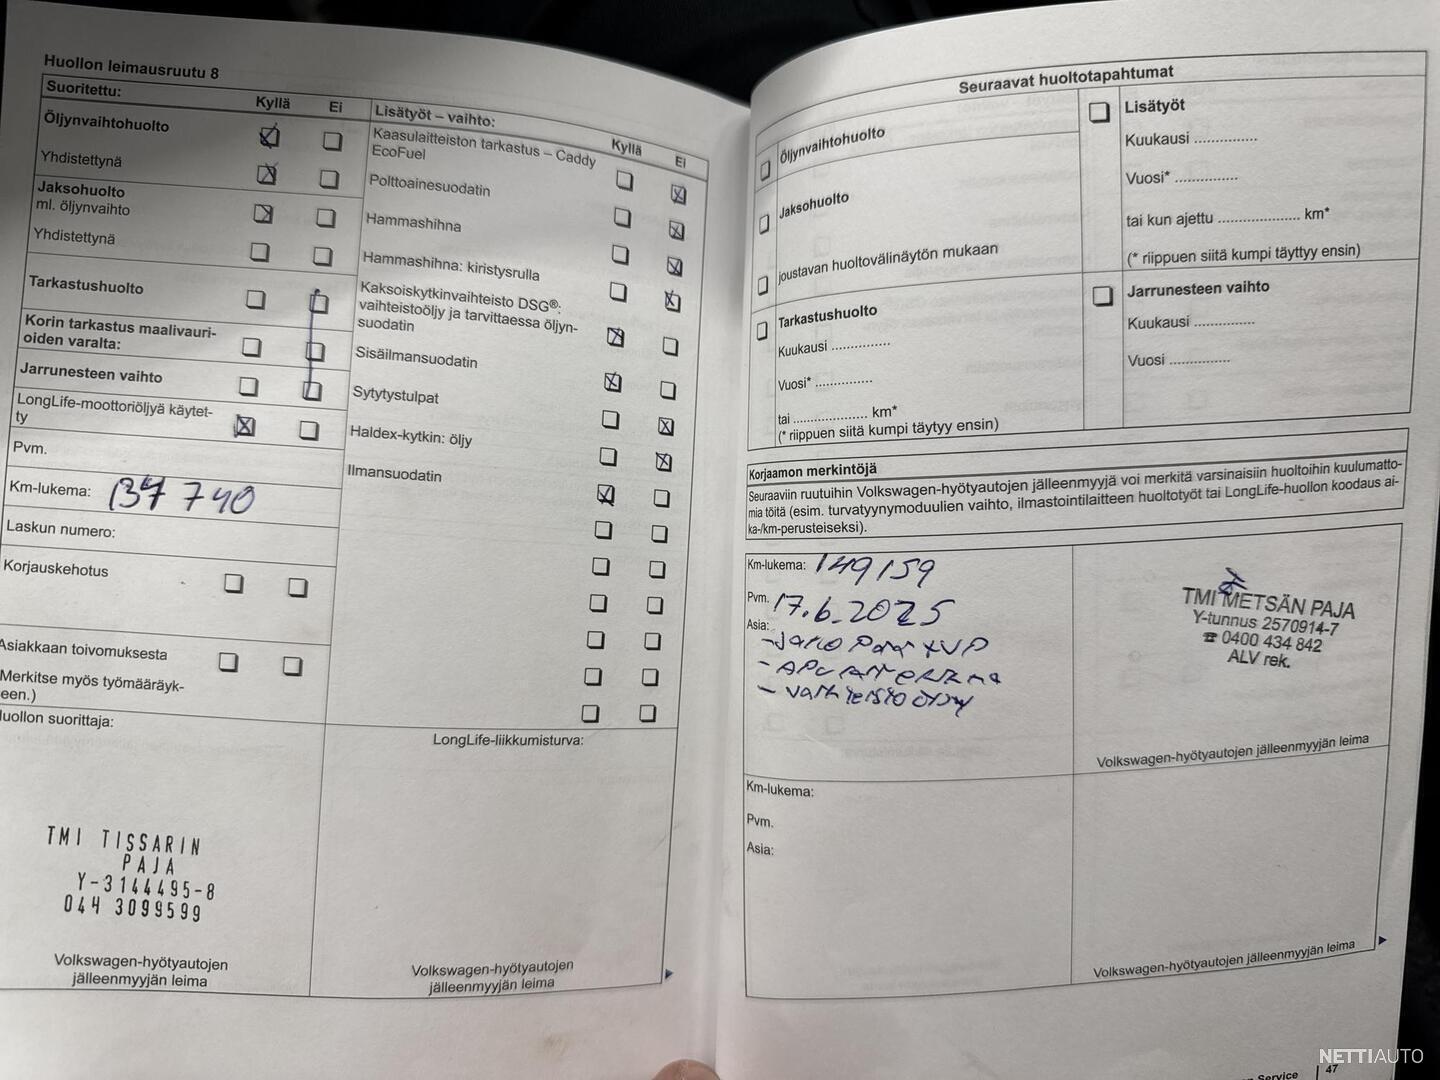 Huollon leimausruutu 8
Suoritettu:
Kyllä
Ei
Öljynvaihtohuolto
Yhdistettynä
Jaksohuolto
ml. öljynvaihto
Yhdistettynä
Tarkastushuolto
Korin tarkastus maalivauri-
oiden varalta:
Jarrunesteen vaihto
LongLife-moottoriöljyä käytet-
ty
Pvm.
Km-lukema: 137 740
Laskun numero:
Korjauskehotus
Asiakkaan toivomuksesta
Merkitse myös työmääräyk-
een.)
uollon suorittaja:
TMI TISSARIN
PAJA
Y-3144495-8
044 3099599
Volkswagen-hyötyautojen
jälleenmyyjän leima
Lisätyöt – vaihto:
Kyllä
Ei
Kaasulaitteiston tarkastus – Caddy
EcoFuel
Polttoainesuodatin
Hammashihna
Hammashihna: kiristysrulla
Kaksoiskytkinvaihteisto DSG®:
vaihteistoöljy ja tarvittaessa öljyn-
suodatin
Sisäilmansuodatin
Sytytystulpat
Haldex-kytkin: öljy
Ilmansuodatin
LongLife-liikkumisturva:
Volkswagen-hyötyautojen
jälleenmyyjän leima
Seuraavat huoltotapahtumat
Öljynvaihtohuolto
Jaksohuolto
joustavan huoltovälinäytön mukaan
Tarkastushuolto
Kuukausi ...............
Vuosi* ...............
tai .................... km*
(* riippuen siitä kumpi täytyy ensin)
Lisätyöt
Kuukausi ...............
Vuosi* ...............
tai kun ajettu .................... km*
(* riippuen siitä kumpi täyttyy ensin)
Jarrunesteen vaihto
Kuukausi ...............
Vuosi ...............
Korjaamon merkintöjä
Seuraaviin ruutuihin Volkswagen-hyötyautojen jälleenmyyjä voi merkitä varsinaisiin huoltoihin kuulumatto-
mia töitä (esim. turvatyynymoduulien vaihto, ilmastointilaitteen huoltotyöt tai LongLife-huollon koodaus ai-
ka-/km-perusteiseksi).
Km-lukema: 149159
Pvm. 17.6.2025
Asia:
- vaihteistoöljy
TMI METSÄN PAJA
Y-tunnus 2570914-7
☎ 0400 434 842
ALV rek.
Volkswagen-hyötyautojen jälleenmyyjän leima
Km-lukema:
Pvm.
Asia:
Volkswagen-hyötyautojen jälleenmyyjän leima
Service
47
NETTIAUTO